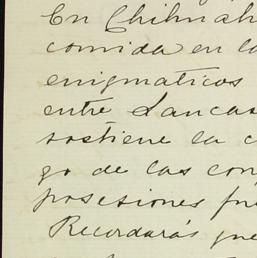 En Chihuah
comida en la
enigmaticos
entre Lancas
sostiene la c
go de las con
posesiones fue
Recordarás que